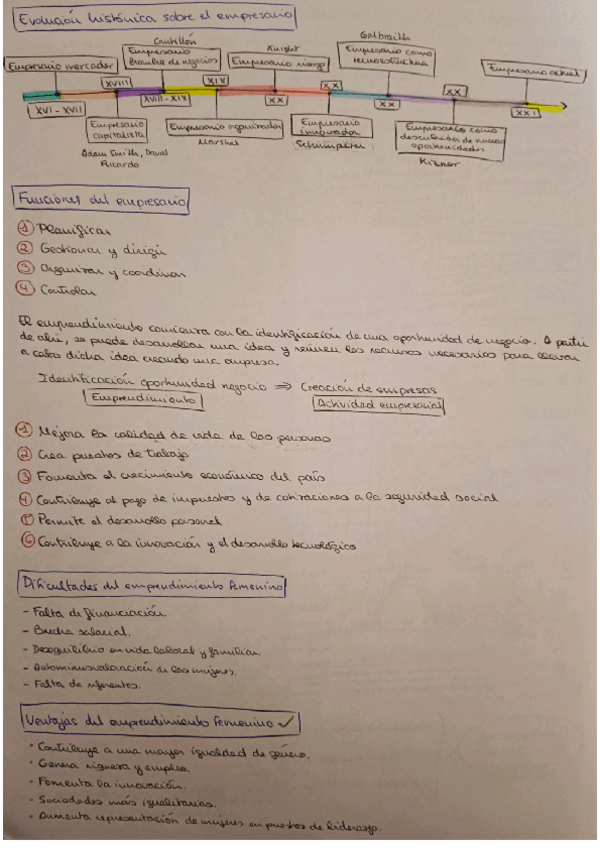 Evolución histórica sobre el empresario
Cantillón
Knight
Galbraith
Empresario mercader
Empresario hombre de negocios
Empresario riesgo
Empresario como tecnoestructura
Empresario actual
XVIII
XIX
XX
XX
XVI - XVII
XVIII - XIX
XX
XX
XXI
Empresario capitalista
Empresario organizador
Empresario innovador
Empresario como descubridor de nuevas oportunidades
Adam Smith, David Ricardo
Marshal
Schumpeter
Kizner
Funciones del empresario
1 Planificar
2 Gestionar y dirigir
3 Organizar y coordinar
4 Controlar
El emprendimiento comienza con la identificación de una oportunidad de negocio. A partir
de ahí, se puede desarrollar una idea y reunir los recursos necesarios para llevar
a cabo dicha idea creando una empresa.
Identificación oportunidad negocio ⇒ Creación de empresas
Emprendimiento
Actividad empresarial
1 Mejora la calidad de vida de las personas
2 Crea puestos de trabajo
3 Fomenta el crecimiento económico del país
4 Contribuye al pago de impuestos y de cotizaciones a la seguridad social
5 Permite el desarrollo personal
6 Contribuye a la innovación y el desarrollo tecnológico
Dificultades del emprendimiento femenino
- Falta de financiación
- Brecha salarial.
- Desequilibrio en vida laboral y familiar.
- Autominusvaloración de las mujeres.
- Falta de referentes.
Ventajas del emprendimiento femenino ✓
· Contribuye a una mayor igualdad de género.
· Genera riqueza y empleo.
· Fomenta la innovación.
· Sociedades más igualitarias.
· Aumenta representación de mujeres en puestos de liderazgo.